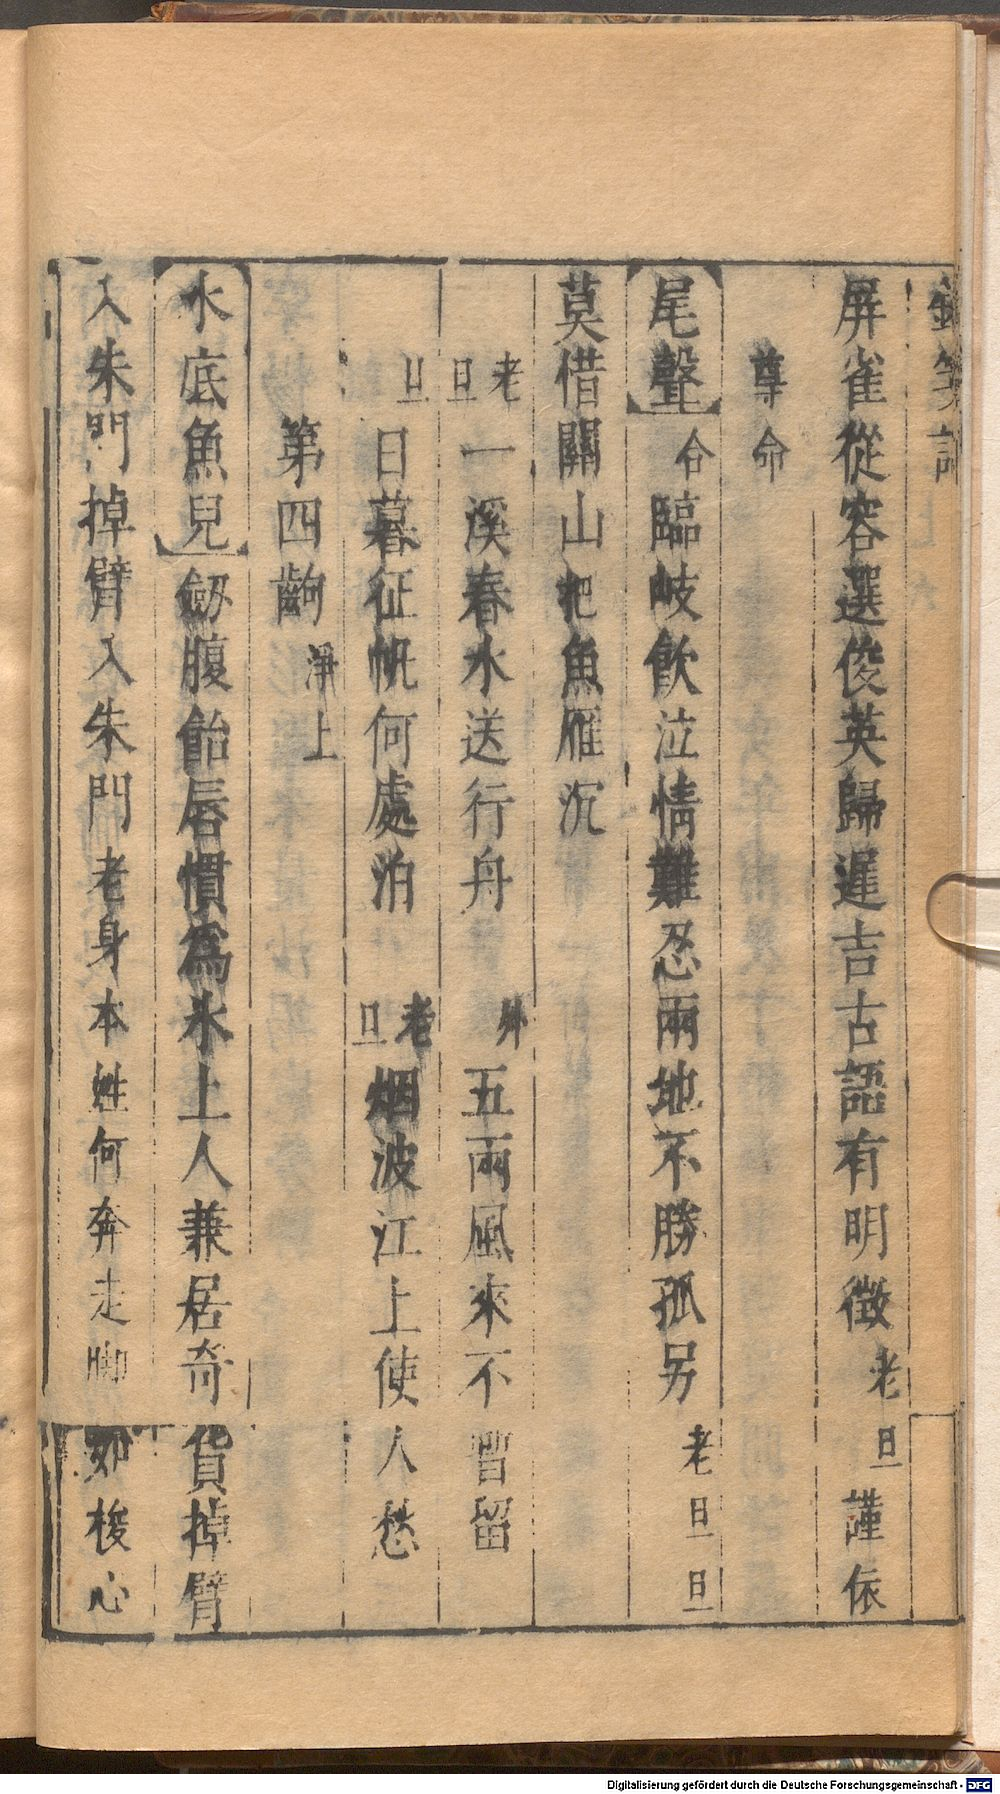 屏雀從容選俊英歸遲吉古語有明徵老旦謹依
尊命
尾聲合臨岐飲泣情難忍兩地不勝孤另老旦旦
莫借關山把魚雁沉
老旦一溪春水送行舟 外五兩風來不暫留
旦日暮征帆何處泊 老旦烟波江上使人愁
第四齣淨上
水底魚兒劒腹飴唇慣爲氷上人兼居奇貨掉臂
入朱門掉臂入朱門老身本姓何奔走脚如梭心
Digitalisierung gefördert durch die Deutsche Forschungsgemeinschaft - DFG